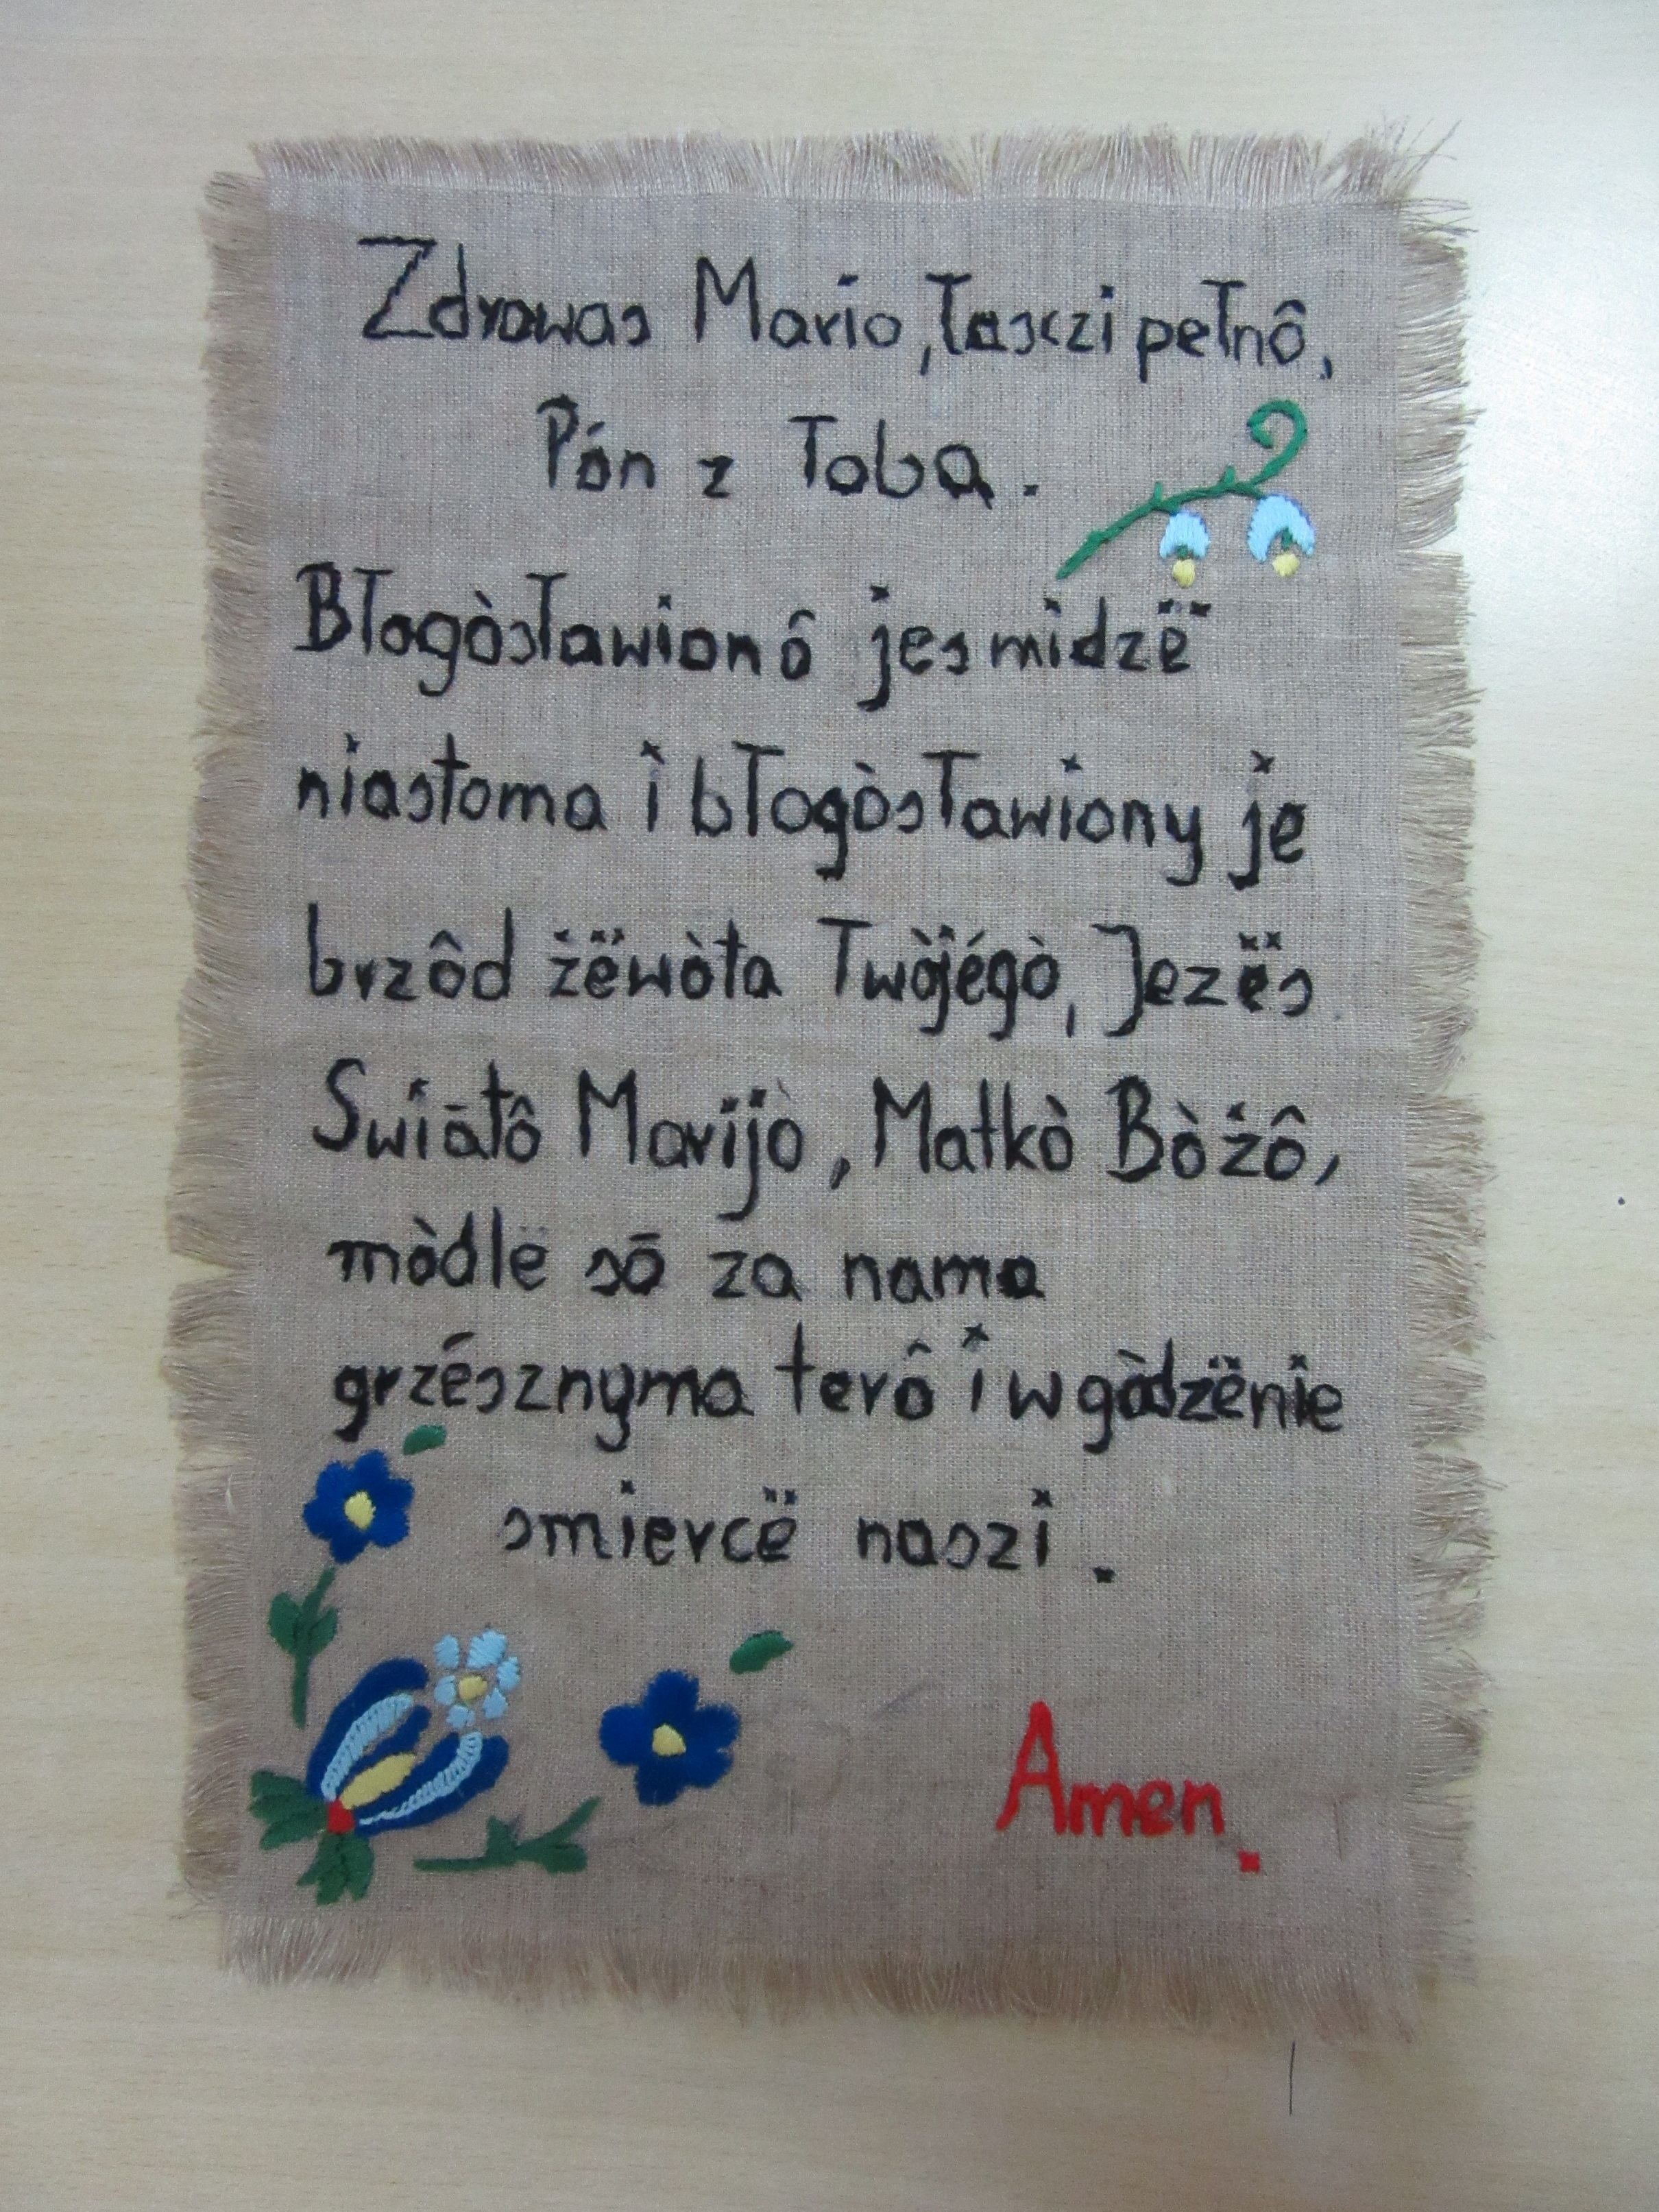 Zdrowas Mario, łasczi pełnô,
Pón z Tobą.
Błogòsławionô jes midzë
niastoma i błogòsławiony je
brzôd żëwòta Twòjégò, Jezës
Swiãtô Marijò, Matkò Bòżô,
mòdlë sã za nama
grzésznyma terô i w gòdzënie
smiercë naszi.
Amen.